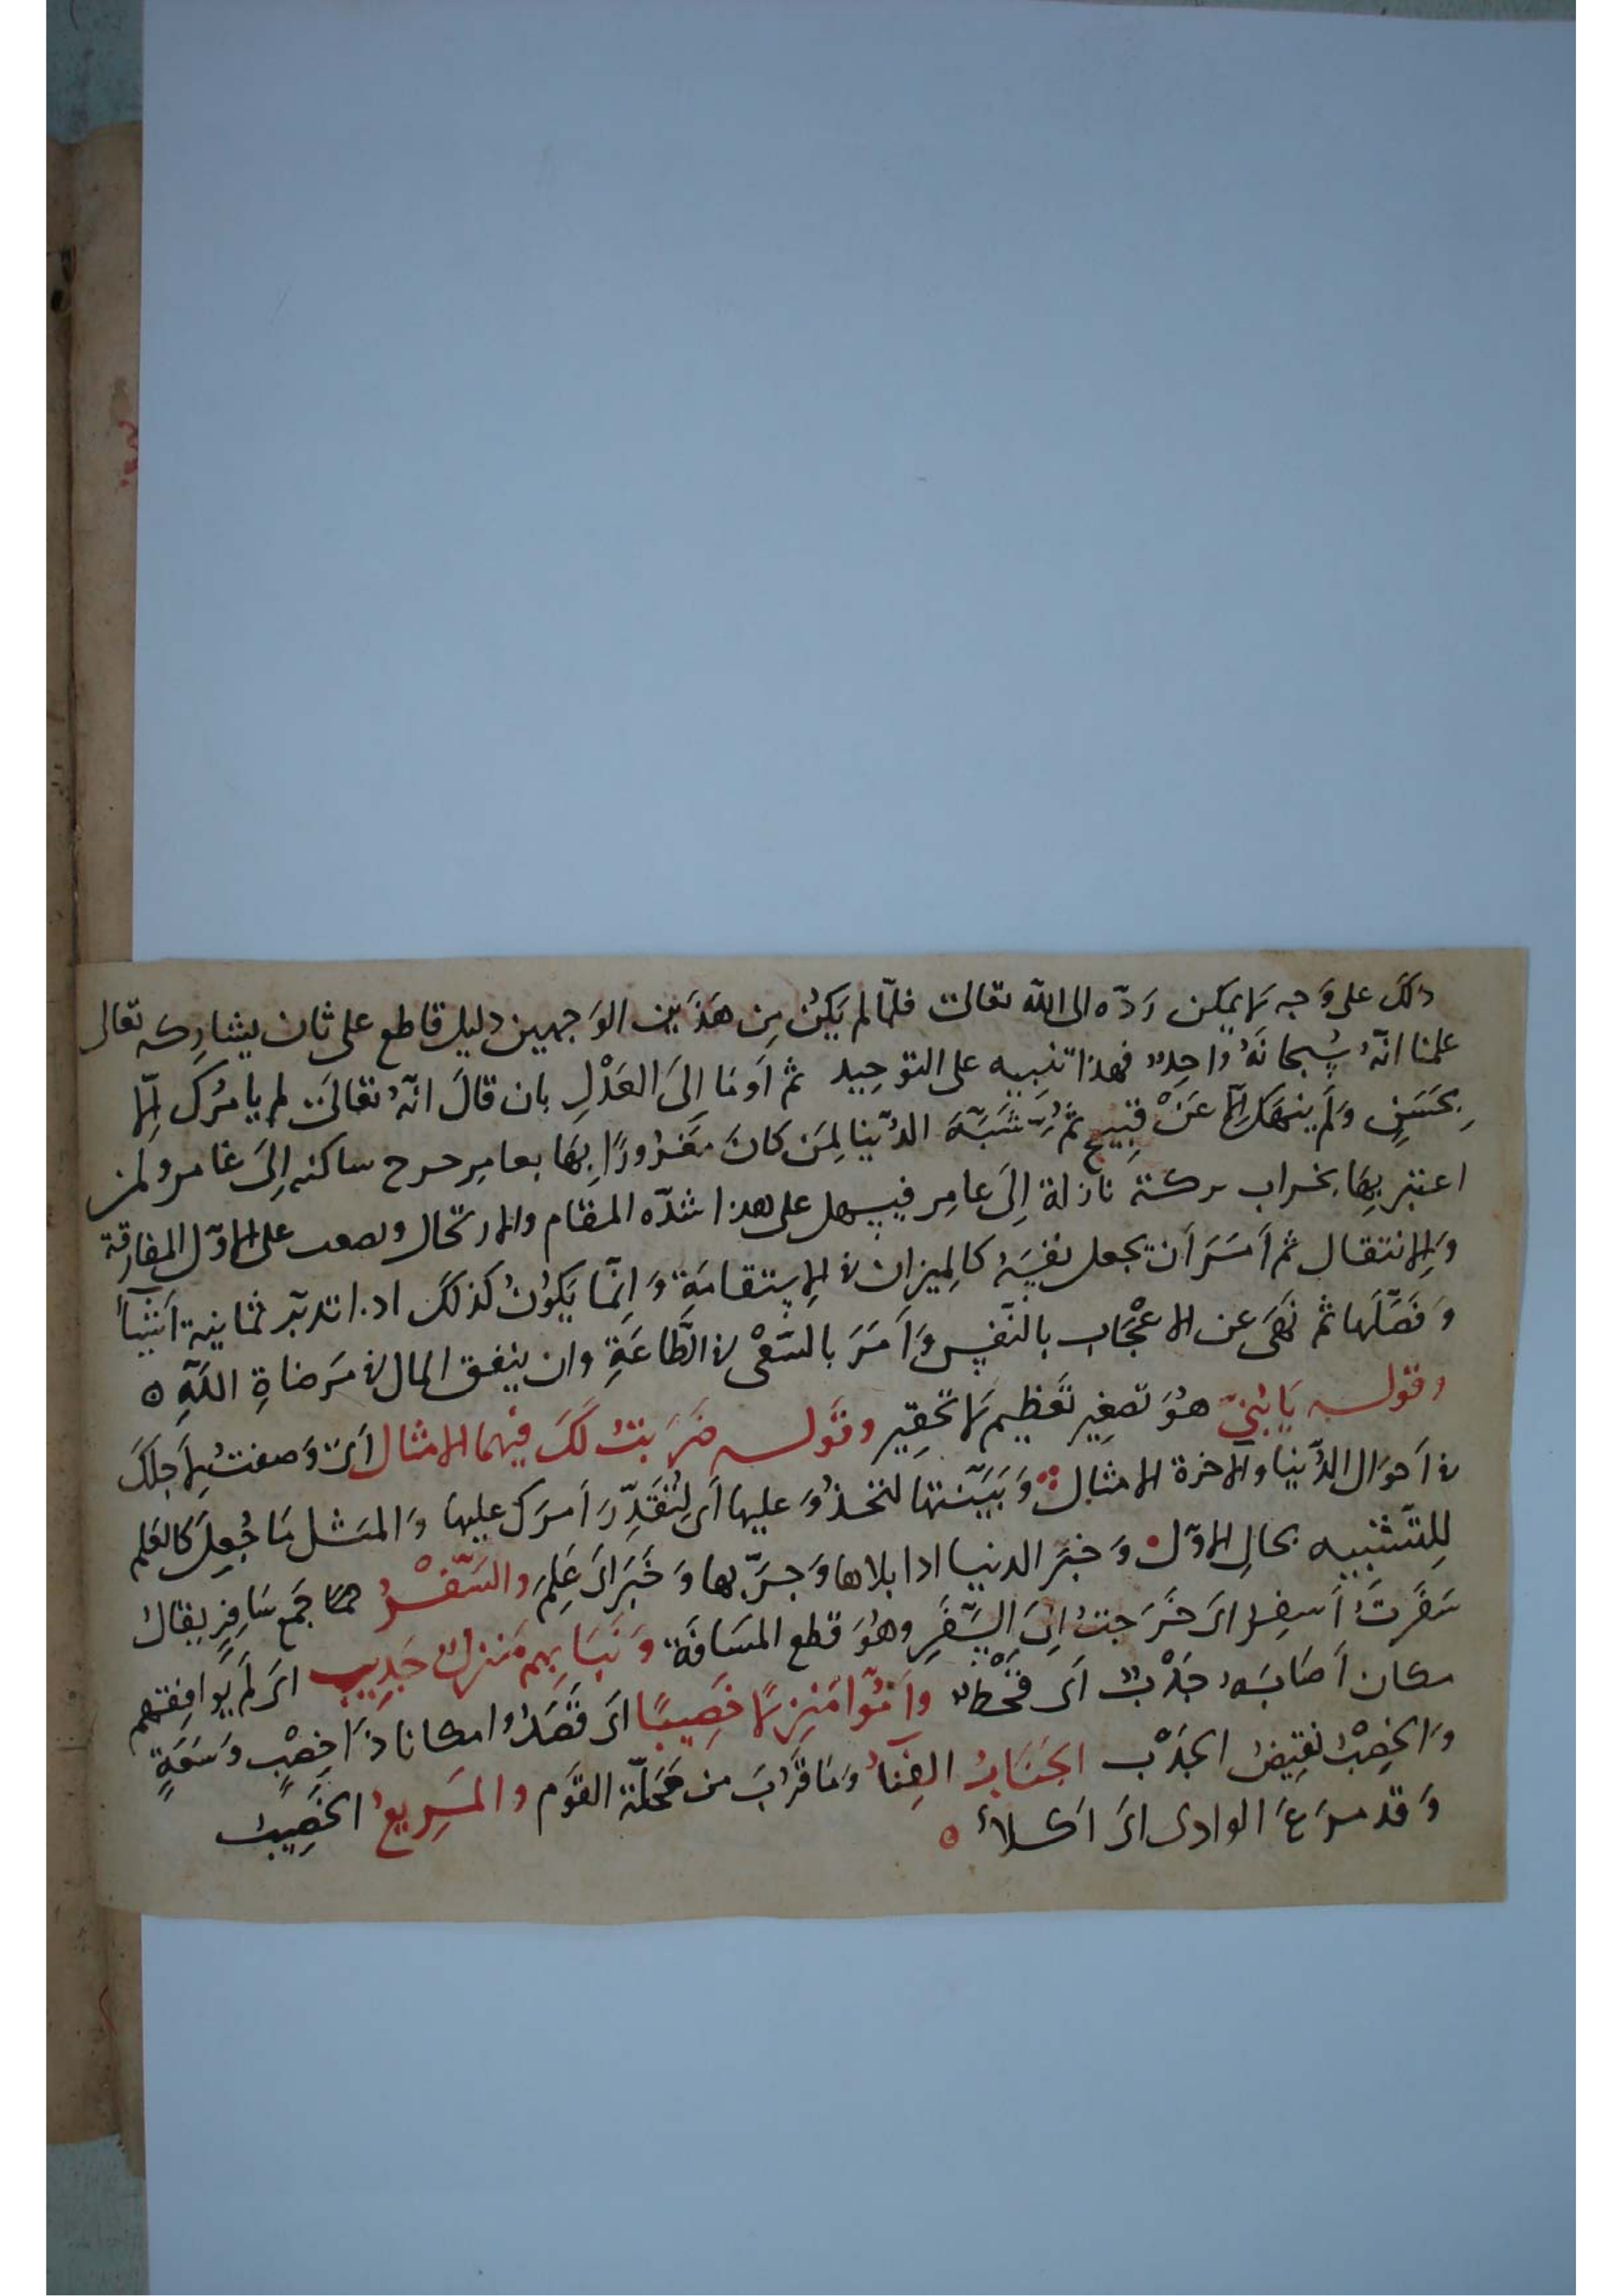 ذلك على وَجه لا يمكن رَدّه الى الله تعالى فلمّا لم يَكُن مِن هَذَين الوَجهين دليل قاطع على ثان يشارِكه تعالى
علمنا انّهُ سُبحانَهُ واحِدٌ فهذا تنبيه على التوحِيد ثم اَومَا اِلىَ العَدْلِ بان قالَ انّهُ تعالىَ لم يامُرك اِلّا
بِحَسَنٍ وَلَم ينهَك اِلّا عَنْ قبِيح ثمَّ شَبَّهَ الدُّنيا لِمَن كانَ مَغرُورًا بِهَا بعامِر خرج ساكنه اِلىَ غامر ولمن
اعتبَر بِهَا بخراب تركته نازلة اِلىَ عامِر فيسهل على هذا شدّه المقام والارتحال وصعب على الاوّل المفارقة
وَالانتقال ثم اَمَرَ اَن يجعل نفسَهُ كالمِيزان في الاِستقامَةِ وَاِنّما يَكُونُ كذلكَ اذا تدبّر ثمانية اَشياً
وَفَصَّلَها ثم نَهَى عن الاعْجَاب بالنّفس وَاَمَرَ بالسَّعْى في الطَّاعَةِ وان ينفق المال في مَرضاةِ اللَّهِ ه
وقوله يَابُنىَّ هُوَ تصغِير تَعظِيم لا تحقِير وقَوله ضَرَبتُ لَكَ فيهما الامثال اَىْ وَصفتُ لِاَجلكَ
في اَحوَال الدُّنيا والآخرة الامثال وَبَيَّنتها لتحذُوَ عليها اَى لِتُقَدِّرَ اَمرك عليها وَالمَثل مَا جُعِلَ كالعَلم
لِلتَشبِيه بحالِ الاوّل وَخبَر الدنيا اذا بلاها وَجرّبها وَخَبَر اَى عَلِمَ والسَّفْرُ جَمع سَافِرٍ يقال
سَفَرتُ اَسفِرُ اىَ خَرَجتُ اِلىَ السَّفَرِ وهُوَ قطع المسَافَة وَنَبَا بِهِم مَنزلٌ جَدِيب اىَ لَم يُوافِقهم
مكان اَصَابَهُ جَدْبٌ اَى قحْطٌ وَاَمُّوا مَنزِلًا خَصِيبًا اىَ قَصَدُوا مكانا ذَا خِصْبٍ وَسَعَةٍ
وَالخِصْبُ نقيضُ الجَدْب الجَنابُ الفِنَآءُ وَمَا قَرُبَ من مَحَلّة القَوم والمَرِيعُ الخَصِيبُ
وَقد مرَعَ الوادى اىَ اَكلأ ه